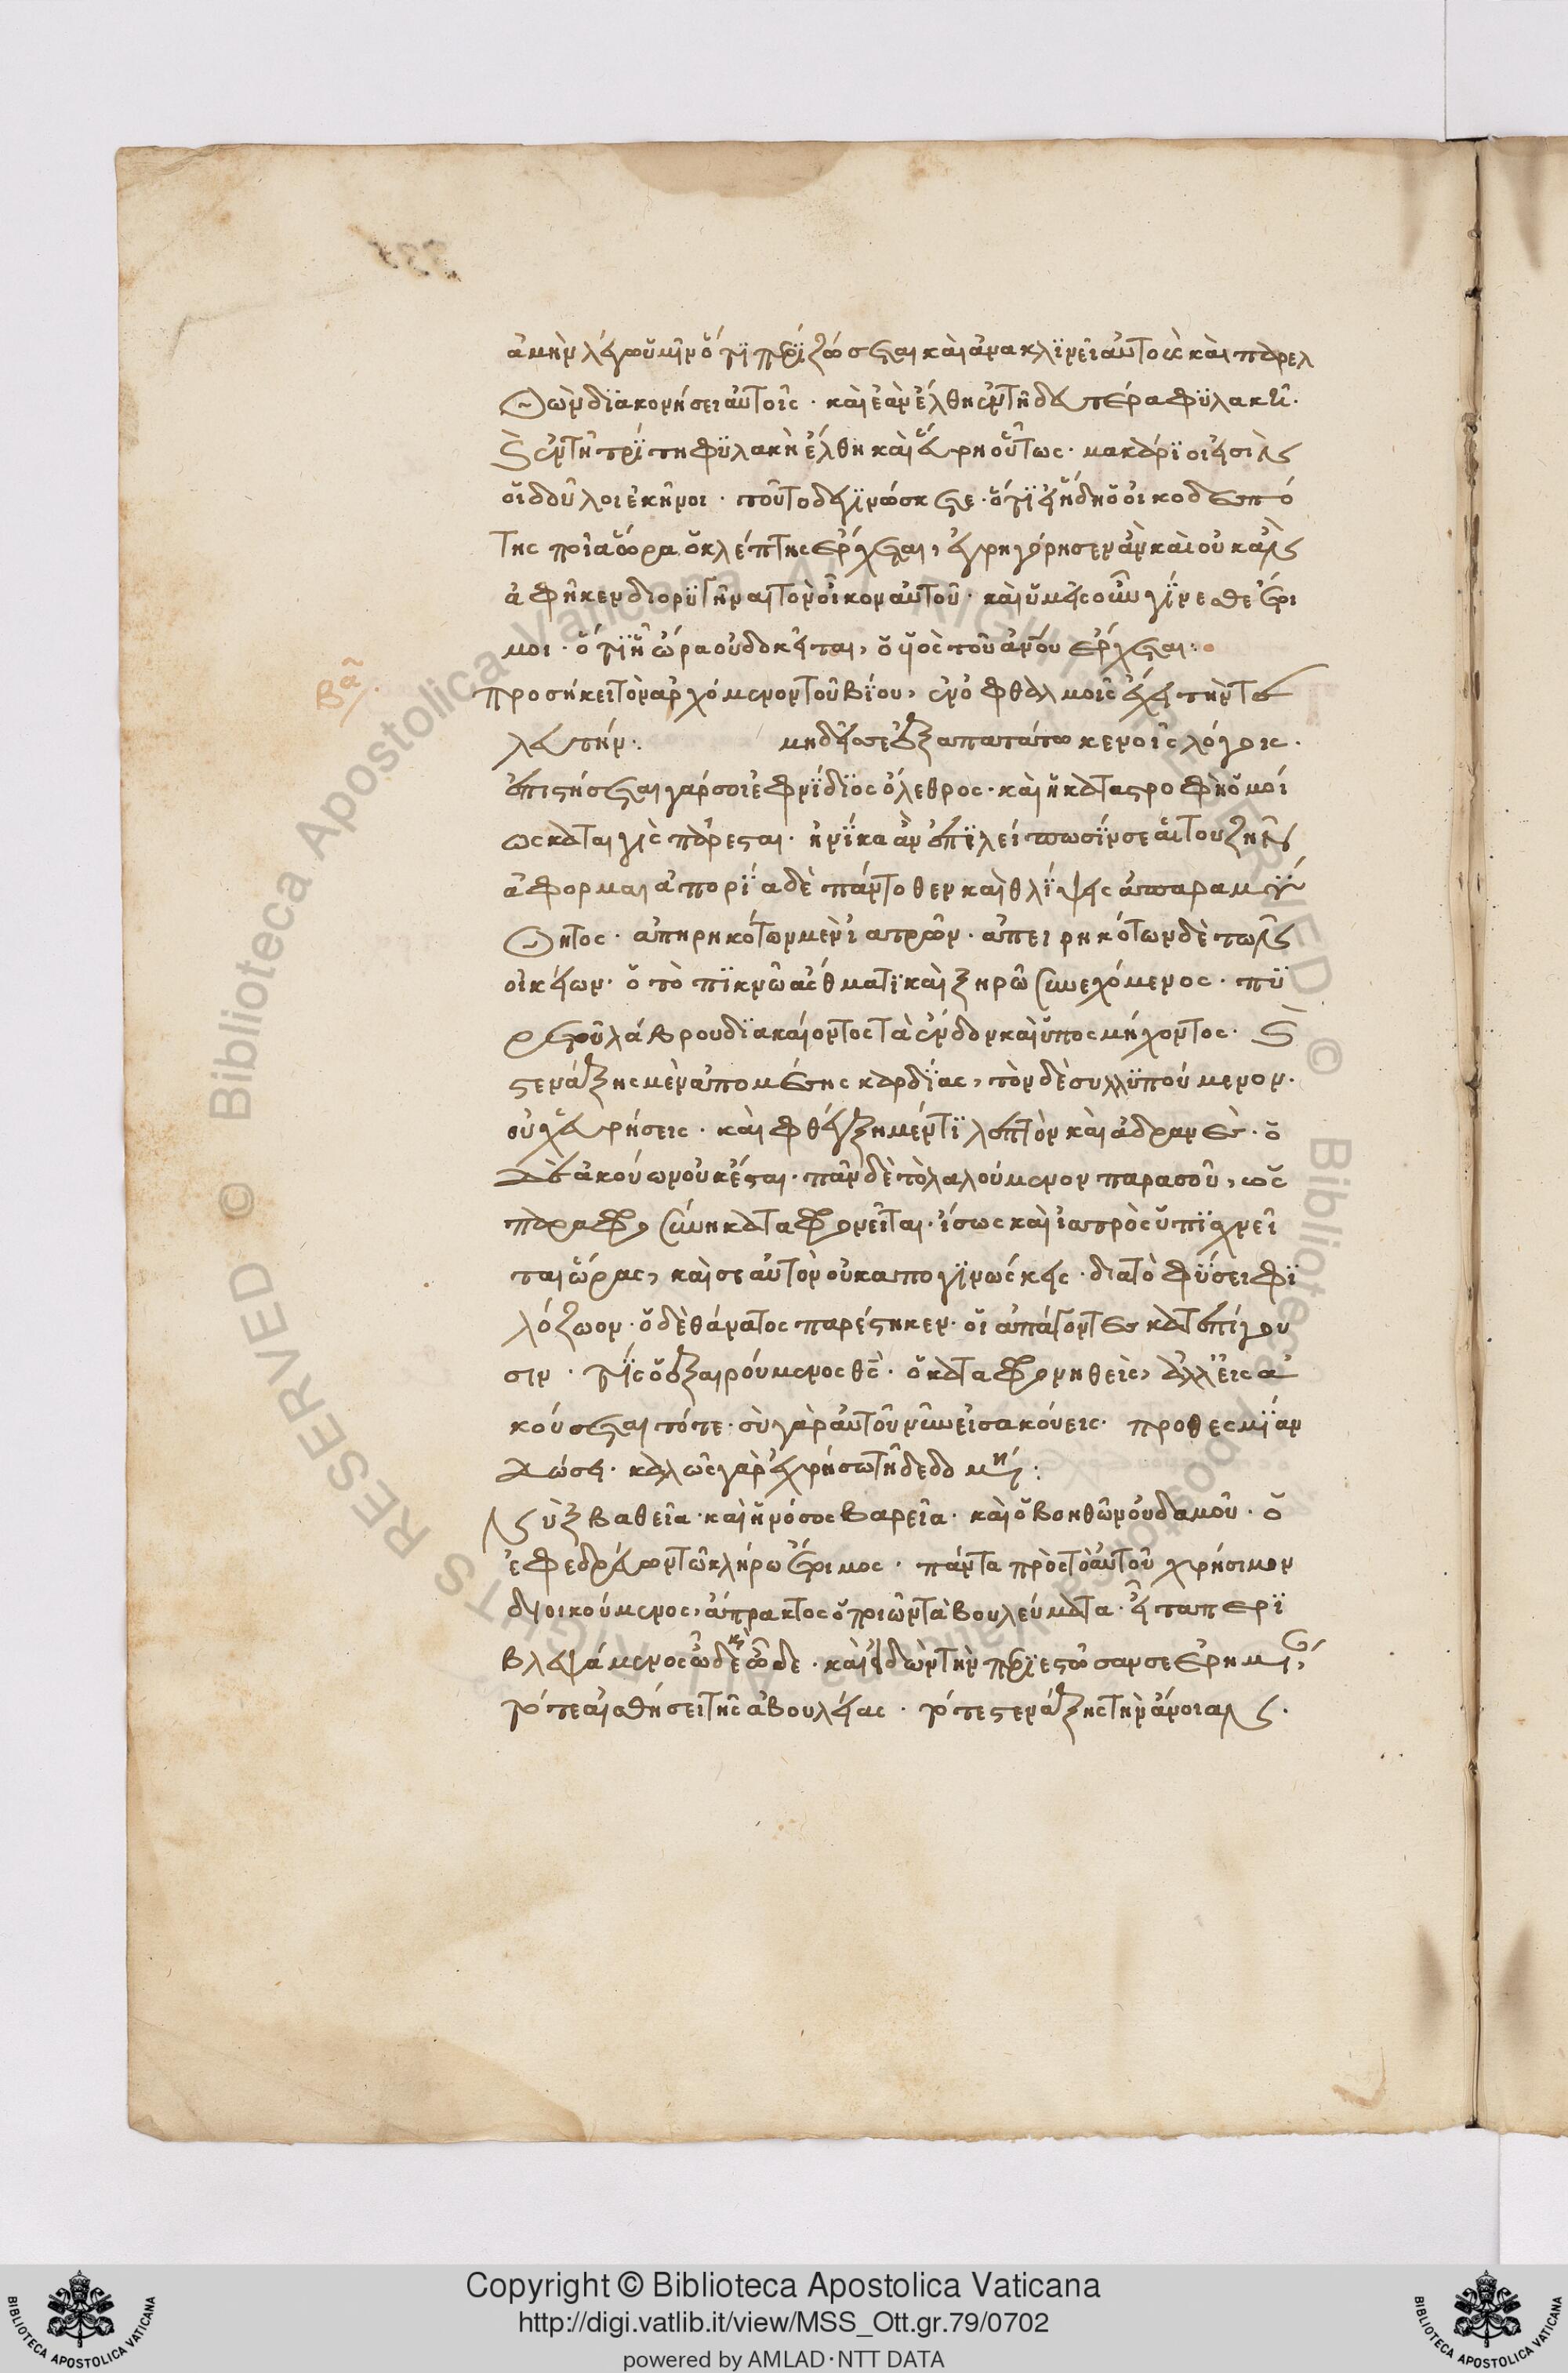 ἀμὴν λέγω ὑμῖν ὅτι περιζώσεται καὶ ἀνακλινεῖ αὐτοὺς καὶ παρελ
θὼν διακονήσει αὐτοῖς · καὶ ἐὰν ἔλθη ἐν τῆ δευτέρα φυλακῆ ·
καὶ ἐν τῆ τρίτη φυλακῆ ἔλθη καὶ εὕρη οὕτως · μακάριοι εἰσὶν
οἱ δοῦλοι ἐκεῖνοι · τοῦτο δὲ γινώσκετε · ὅτι εἰ ἤδει ὁ οἰκοδεσπό
της ποία ὥρα ὁ κλέπτης ἔρχεται, ἐγρηγόρησεν ἂν καὶ οὐκ ἂν
ἀφῆκεν διορυγῆναι τὸν οἶκον αὐτοῦ · καὶ ὑμεῖς οὖν γίνεσθε ἕτοι
μοι · ὅτι ἧ ὥρα οὐ δοκεῖται, ὁ υἱὸς τοῦ ἀνου ἔρχεται :
Βα
προσήκει τὸν ἀρχόμενον τοῦ βίου, ἐν ὀφθαλμοῖς ἔχειν τὴν τε
λευτήν : μηδείς σε ἐξαπατάτω κενοῖς λόγοις ·
ἐπιστήσεται γάρ σοι ἐφνίδιος ὄλεθρος · καὶ ἡ καταστροφὴ ὁμοί
ως καταιγὶς πάρεσται · ἡνίκα ἂν ἐπιλείπωσίν σε αἱ τοῦ ζῆν
ἀφορμαι ἀπορία δὲ πάντοθεν καὶ θλίψις ἀπαραμύ
θητος · ἀπηρηκότων μὲν ἰατρῶν · ἀπειρηκότων δὲ τῶν
οἰκείων · ὁ τὸ πικνῶ ἄσθματι καὶ ξηρῶ συνεχόμενος · πυ
ρετοῦ λάβρου διακαίοντος τὰ ἔνδον καὶ ὑποσμήχοντος · καὶ
στενάξης μὲν ἀπὸ μέσης καρδίας, τὸν δὲ συλλυπούμενον ·
οὐχ εὑρήσεις · καὶ φθέγξη μέν τι λεπτὸν καὶ ἀδρανές · ὁ
δὲ ἀκούων οὐκ ἔσται · πᾶν δὲ τὸ λαλούμενον παρὰ σοῦ, ὡς
παραφροσύνη καταφρονεῖται · ἴσως καὶ ἰατρὸς ὑπισχνεῖ
ται ὥρας, καὶ σεαυτὸν οὐκ απογινώσκεις · δια τὸ φύσει φι
λόζωον · ὁ δὲ θάνατος παρέστηκεν · οἱ ἀπάγοντες κατεπείγου
σιν · τίς ὁ ἐξαιρούμενος θς · ὁ καταφρονηθεὶς, ἀλλ' εἰσα
κούσεται τότε · σὺ γὰρ αὐτοῦ νῦν εἰσακούεις · προθεσμίαν
δώσει · καλῶς γὰρ ἐχρήσω τῆ δεδομ :
νὺξ βαθεῖα · καὶ ἡ νόσος βαρεῖα · καὶ ὁ βοηθῶν οὐδαμοῦ · ὁ
ἐφεδρεύων τῶ κλήρω ἕτοιμος · πάντα πρὸς τὸ αὐτοῦ χρήσιμον
διοικούμενος, ἄπρακτος ὁ ποιῶν τὰ βουλεύματα · εἶτα περι
βλεψάμενος ὧδε καὶ ὧδε · καὶ ἰδὼν τὴν περιεστῶσαν σε ἐρημί,
τότε αἰσθήσει τῆς ἀβουλείας · τότε στενάξης τὴν ἄνοιαν ·
Copyright © Biblioteca Apostolica Vaticana
http://digi.vatlib.it/view/MSS_Ott.gr.79/0702
powered by AMLAD·NTT DATA